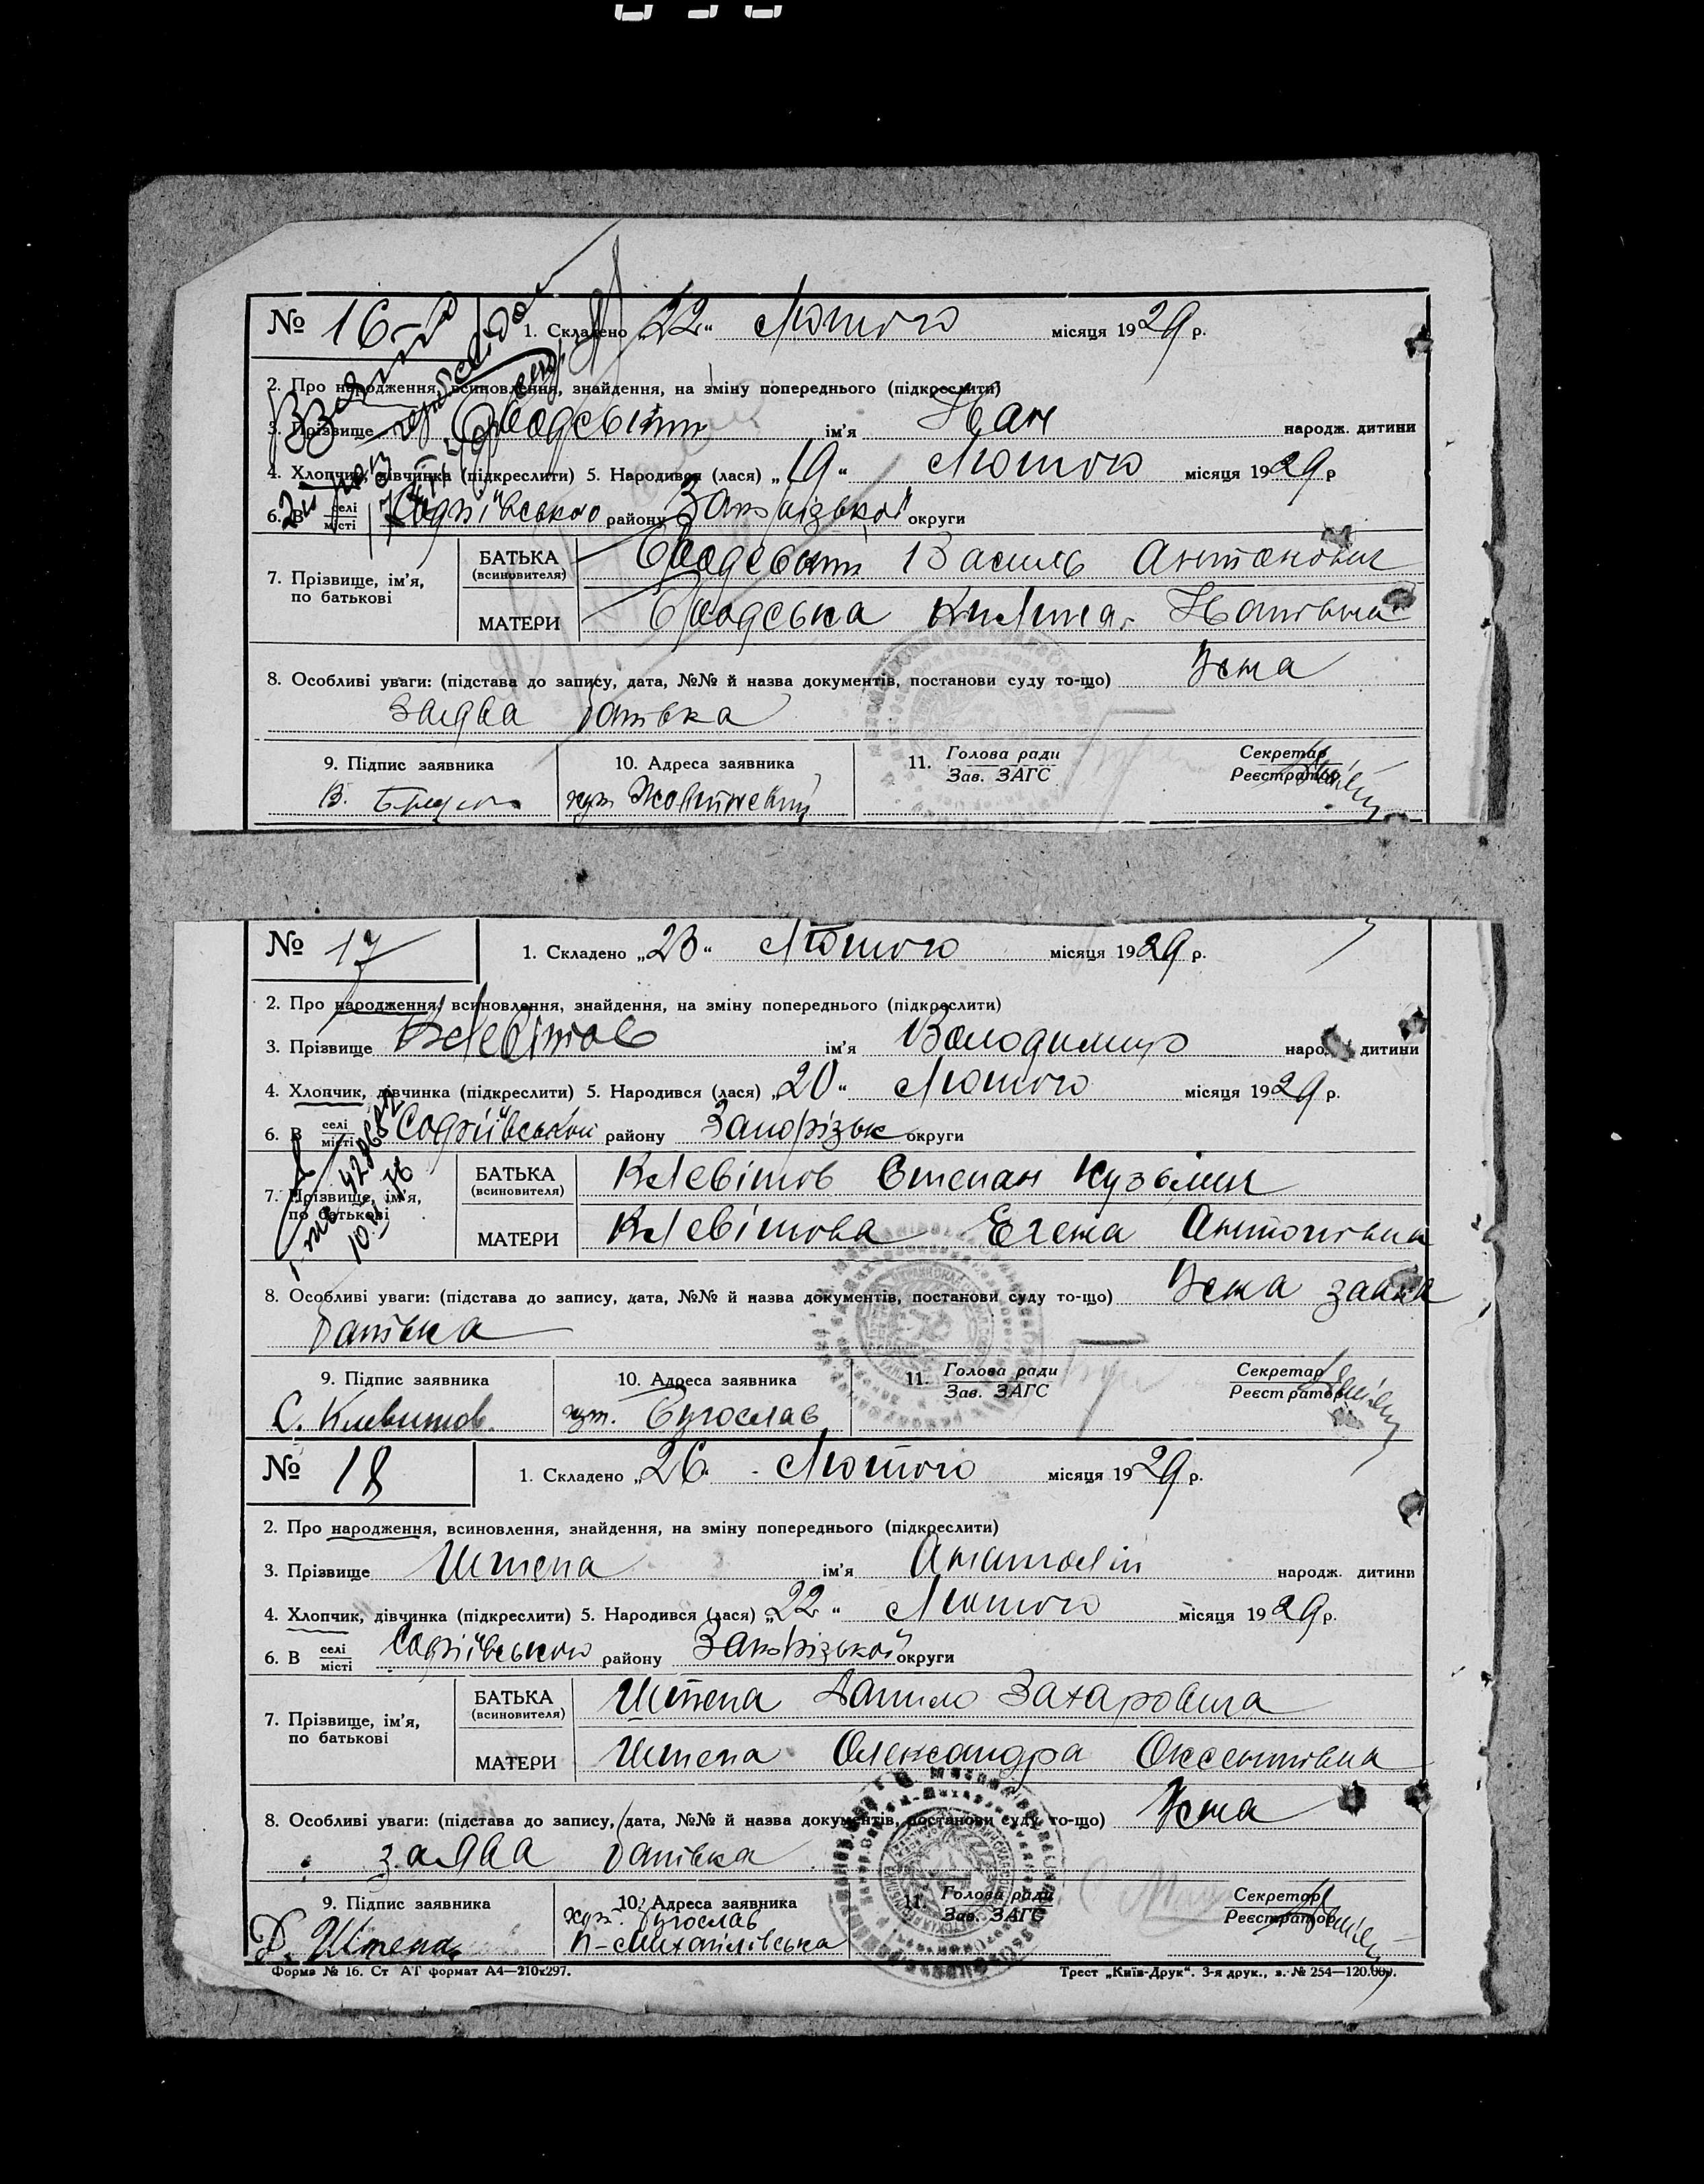 № 16
1. Складено „22“ Лютого місяця 1929 р.
2. Про народження, всиновлення, знайдення, на зміну попереднього (підкреслити)
3. Прізвище ім'я Іван народж. дитини
4. Хлопчик, дівчинка (підкреслити) 5. Народився (лася) „19“ Лютого місяця 1929 р
6. В селі місті Софіївського району Запорізької округи
7. Прізвище, ім'я, по батькові
БАТЬКА (всиновителя) Василь Антонович
МАТЕРИ Бродська Килина Іванівна
8. Особливі уваги: (підстава до запису, дата, №№ й назва документів, постанови суду то-що) Усна
заява батька
9. Підпис заявника 10. Адреса заявника 11. Голова ради Зав. ЗАГС Секретар Реєстратор
В. хут. Жовтневий
№ 17
1. Складено „23“ Лютого місяця 1929 р.
2. Про народження, всиновлення, знайдення, на зміну попереднього (підкреслити)
3. Прізвище Клевітов ім'я Володимир народж. дитини
4. Хлопчик, дівчинка (підкреслити) 5. Народився (лася) „20“ Лютого місяця 1929 р.
6. В селі місті Софіївської району Запорізьк округи
7. Прізвище, ім'я, по батькові
БАТЬКА (всиновителя) Клевітов Степан Кузьмич
МАТЕРИ Клевітова Елена Антонівна
8. Особливі уваги: (підстава до запису, дата, №№ й назва документів, постанови суду то-що) Усна заява
батька
9. Підпис заявника 10. Адреса заявника 11. Голова ради Зав. ЗАГС Секретар Реєстратор
С. Клевитов. хут. Бугослав
№ 18
1. Складено „26“ Лютого місяця 1929 р.
2. Про народження, всиновлення, знайдення, на зміну попереднього (підкреслити)
3. Прізвище Штепа ім'я Анатолій народж. дитини
4. Хлопчик, дівчинка (підкреслити) 5. Народився (лася) „22“ Лютого місяця 1929 р.
6. В селі місті Софіївського району Запорізької округи
7. Прізвище, ім'я, по батькові
БАТЬКА (всиновителя) Штепа Данило Захаровича
МАТЕРИ Штепа Олександра Оксентівна
8. Особливі уваги: (підстава до запису, дата, №№ й назва документів, постанови суду то-що) Усна
заява батька
9. Підпис заявника 10. Адреса заявника 11. Голова ради Зав. ЗАГС Секретар Реєстратор
Д. Штепа хут. Бугослав
Н-Михайлівська
Форма № 16. Ст АТ формат А4—210х297. Трест „Київ-Друк“. 3-я друк., з. № 254—120.000.